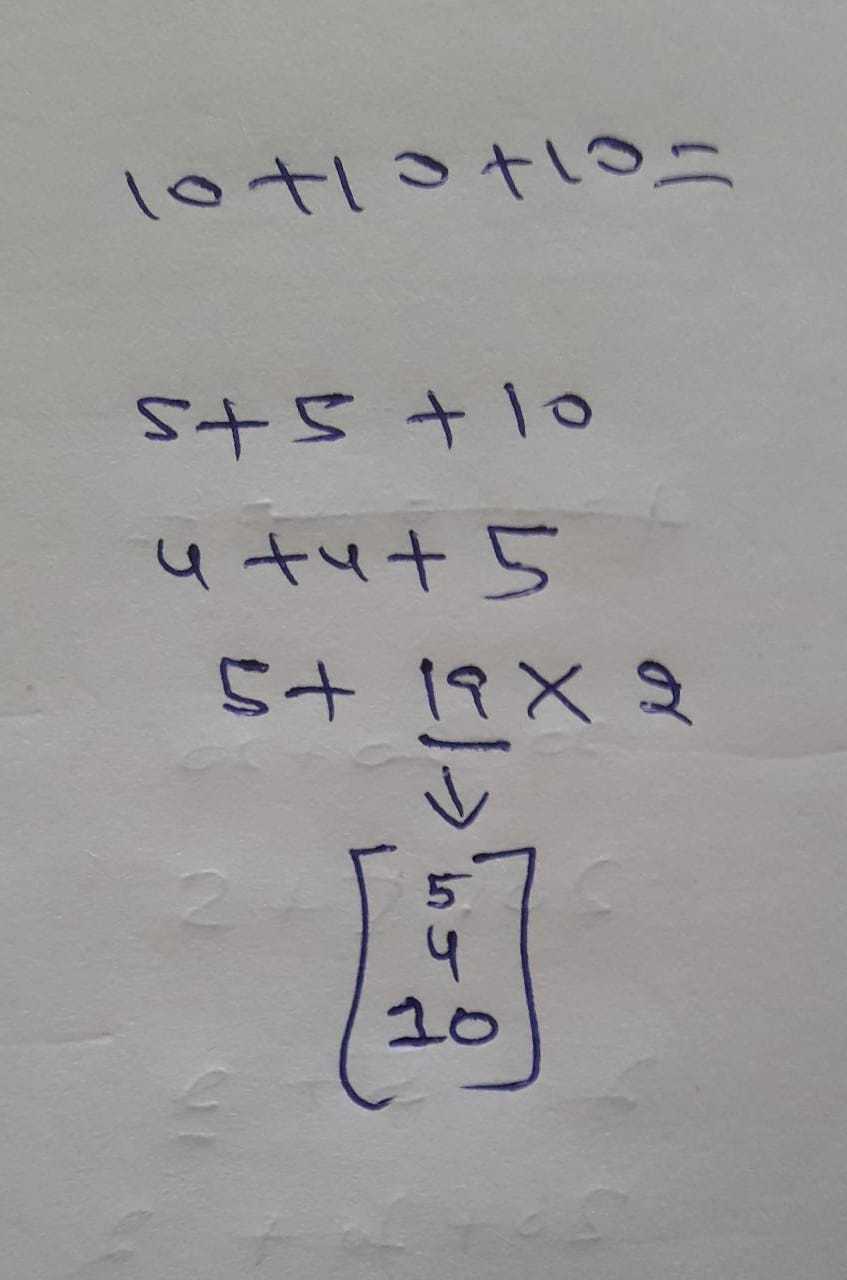 10+10+10=
5+5+10
4+4+5
5+19×2
↓
5
4
10